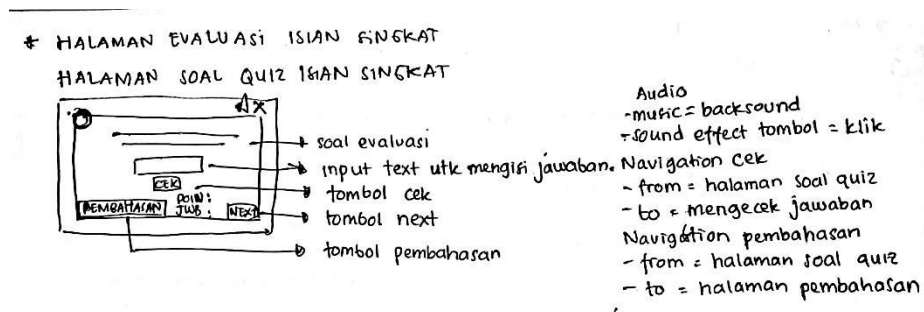 * HALAMAN EVALUASI ISIAN SINGKAT
HALAMAN SOAL QUIZ ISIAN SINGKAT
X
CEK
POIN:
JWB:
PEMBAHASAN
NEXT
soal evaluasi
input text utk mengisi jawaban.
tombol cek
tombol next
tombol pembahasan
Audio
- music = backsound
- sound effect tombol = klik
Navigation cek
- from = halaman soal quiz
- to = mengecek jawaban
Navigation pembahasan
- from = halaman soal quiz
- to = halaman pembahasan